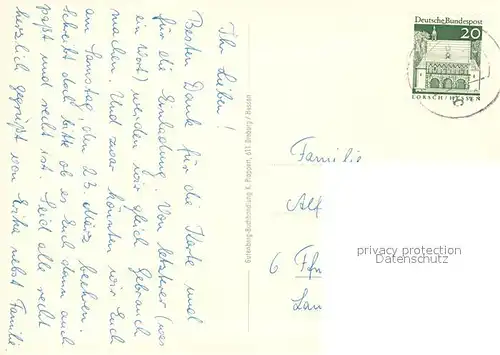 Ihr Lieben!
Besten Dank für die Karte und
für die Einladung. Von letzterer (was
ein Wort) werden wir gleich Gebrauch
machen. Und zwar könnten wir Euch
am Samstag, den 23. März beehren.
Schreibt doch bitte ob es Euch dann auch
paßt und recht ist. Seid alle recht
herzlich gegrüßt von Erika nebst Familie
Gutenberg-Buchhandlung K. 611 Dieburg / Hessen
Deutsche Bundespost
20
LORSCH/HESSEN
Familie
Alf
6
Lan
privacy protection
Datenschutz